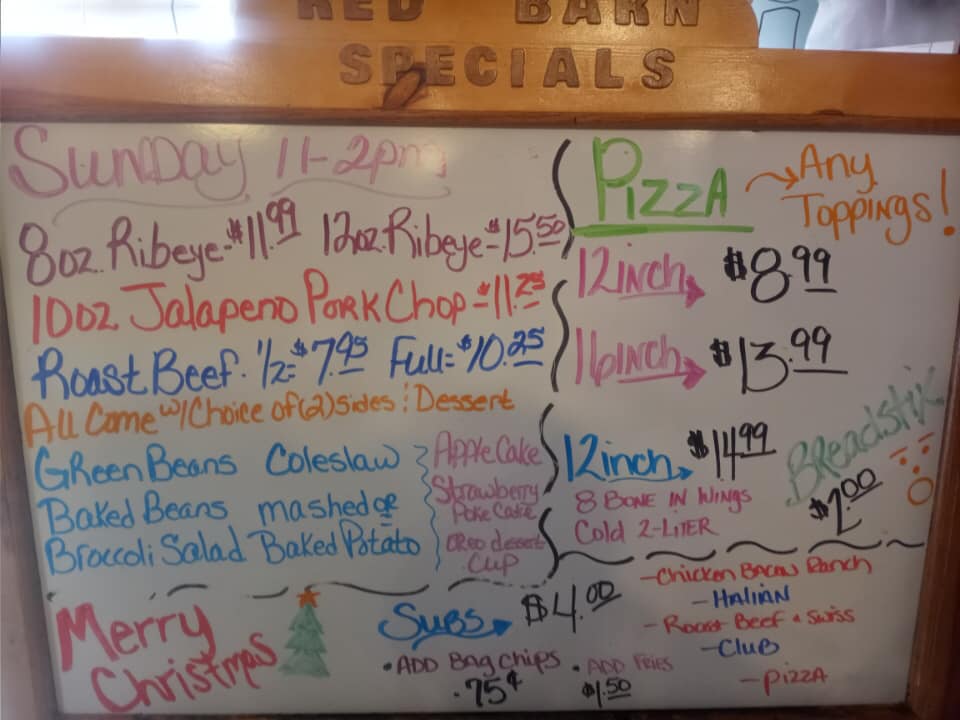 RED BARN
SPECIALS
Sunday 11-2pm
8oz. Ribeye-$11.99 12oz. Ribeye=$15.50
10oz Jalapeno Pork Chop-$11.25
Roast Beef. 1/2=$7.45 Full=$10.25
All Come w/ Choice of (2) Sides : Dessert
Green Beans Coleslaw
Baked Beans mashed or
Broccoli Salad Baked Potato
Apple Cake
Strawberry
Poke Cake
Oreo desert
Cup
Pizza
Any
Toppings!
12inch $8.99
16inch $13.99
12inch $14.99
8 Bone in Wings
Cold 2-Liter
Breadstix
$2.00
Merry
Christmas
Subs $4.00
• Add Bag Chips
.75¢
• Add Fries
$1.50
- Chicken Bacon Ranch
- Italian
- Roast Beef & Swiss
- Club
- Pizza